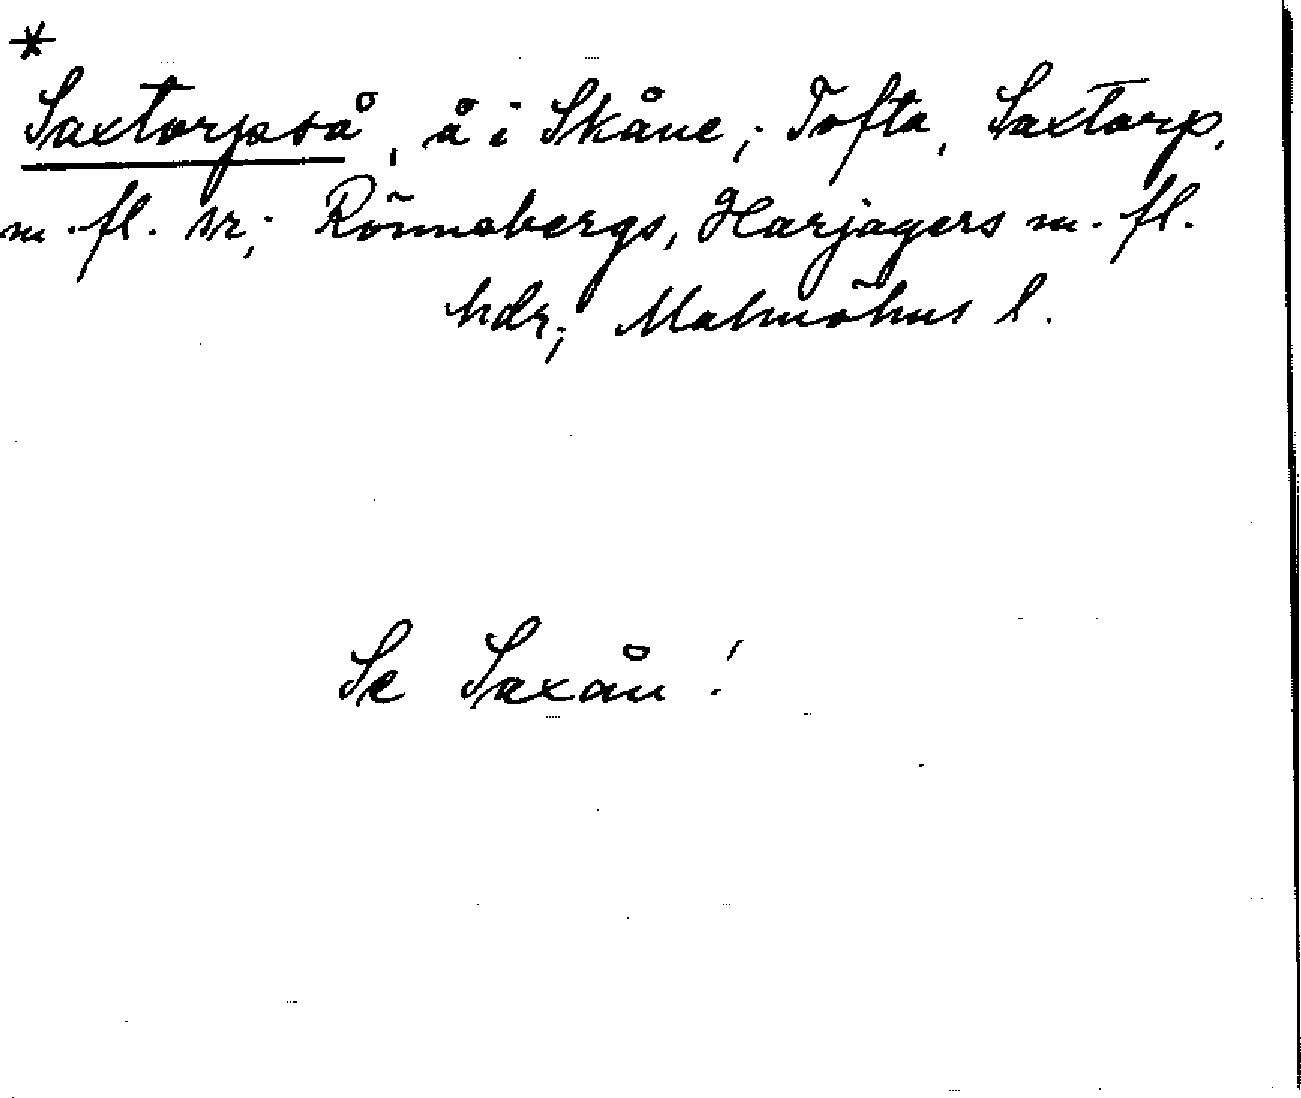 *
Saxtorpså, å i Skåne; Tofta, Saxtorp,
m. fl. sr; Rönnebergs, Harjagers m. fl.
hdr; Malmöhus l.
Se Saxån!